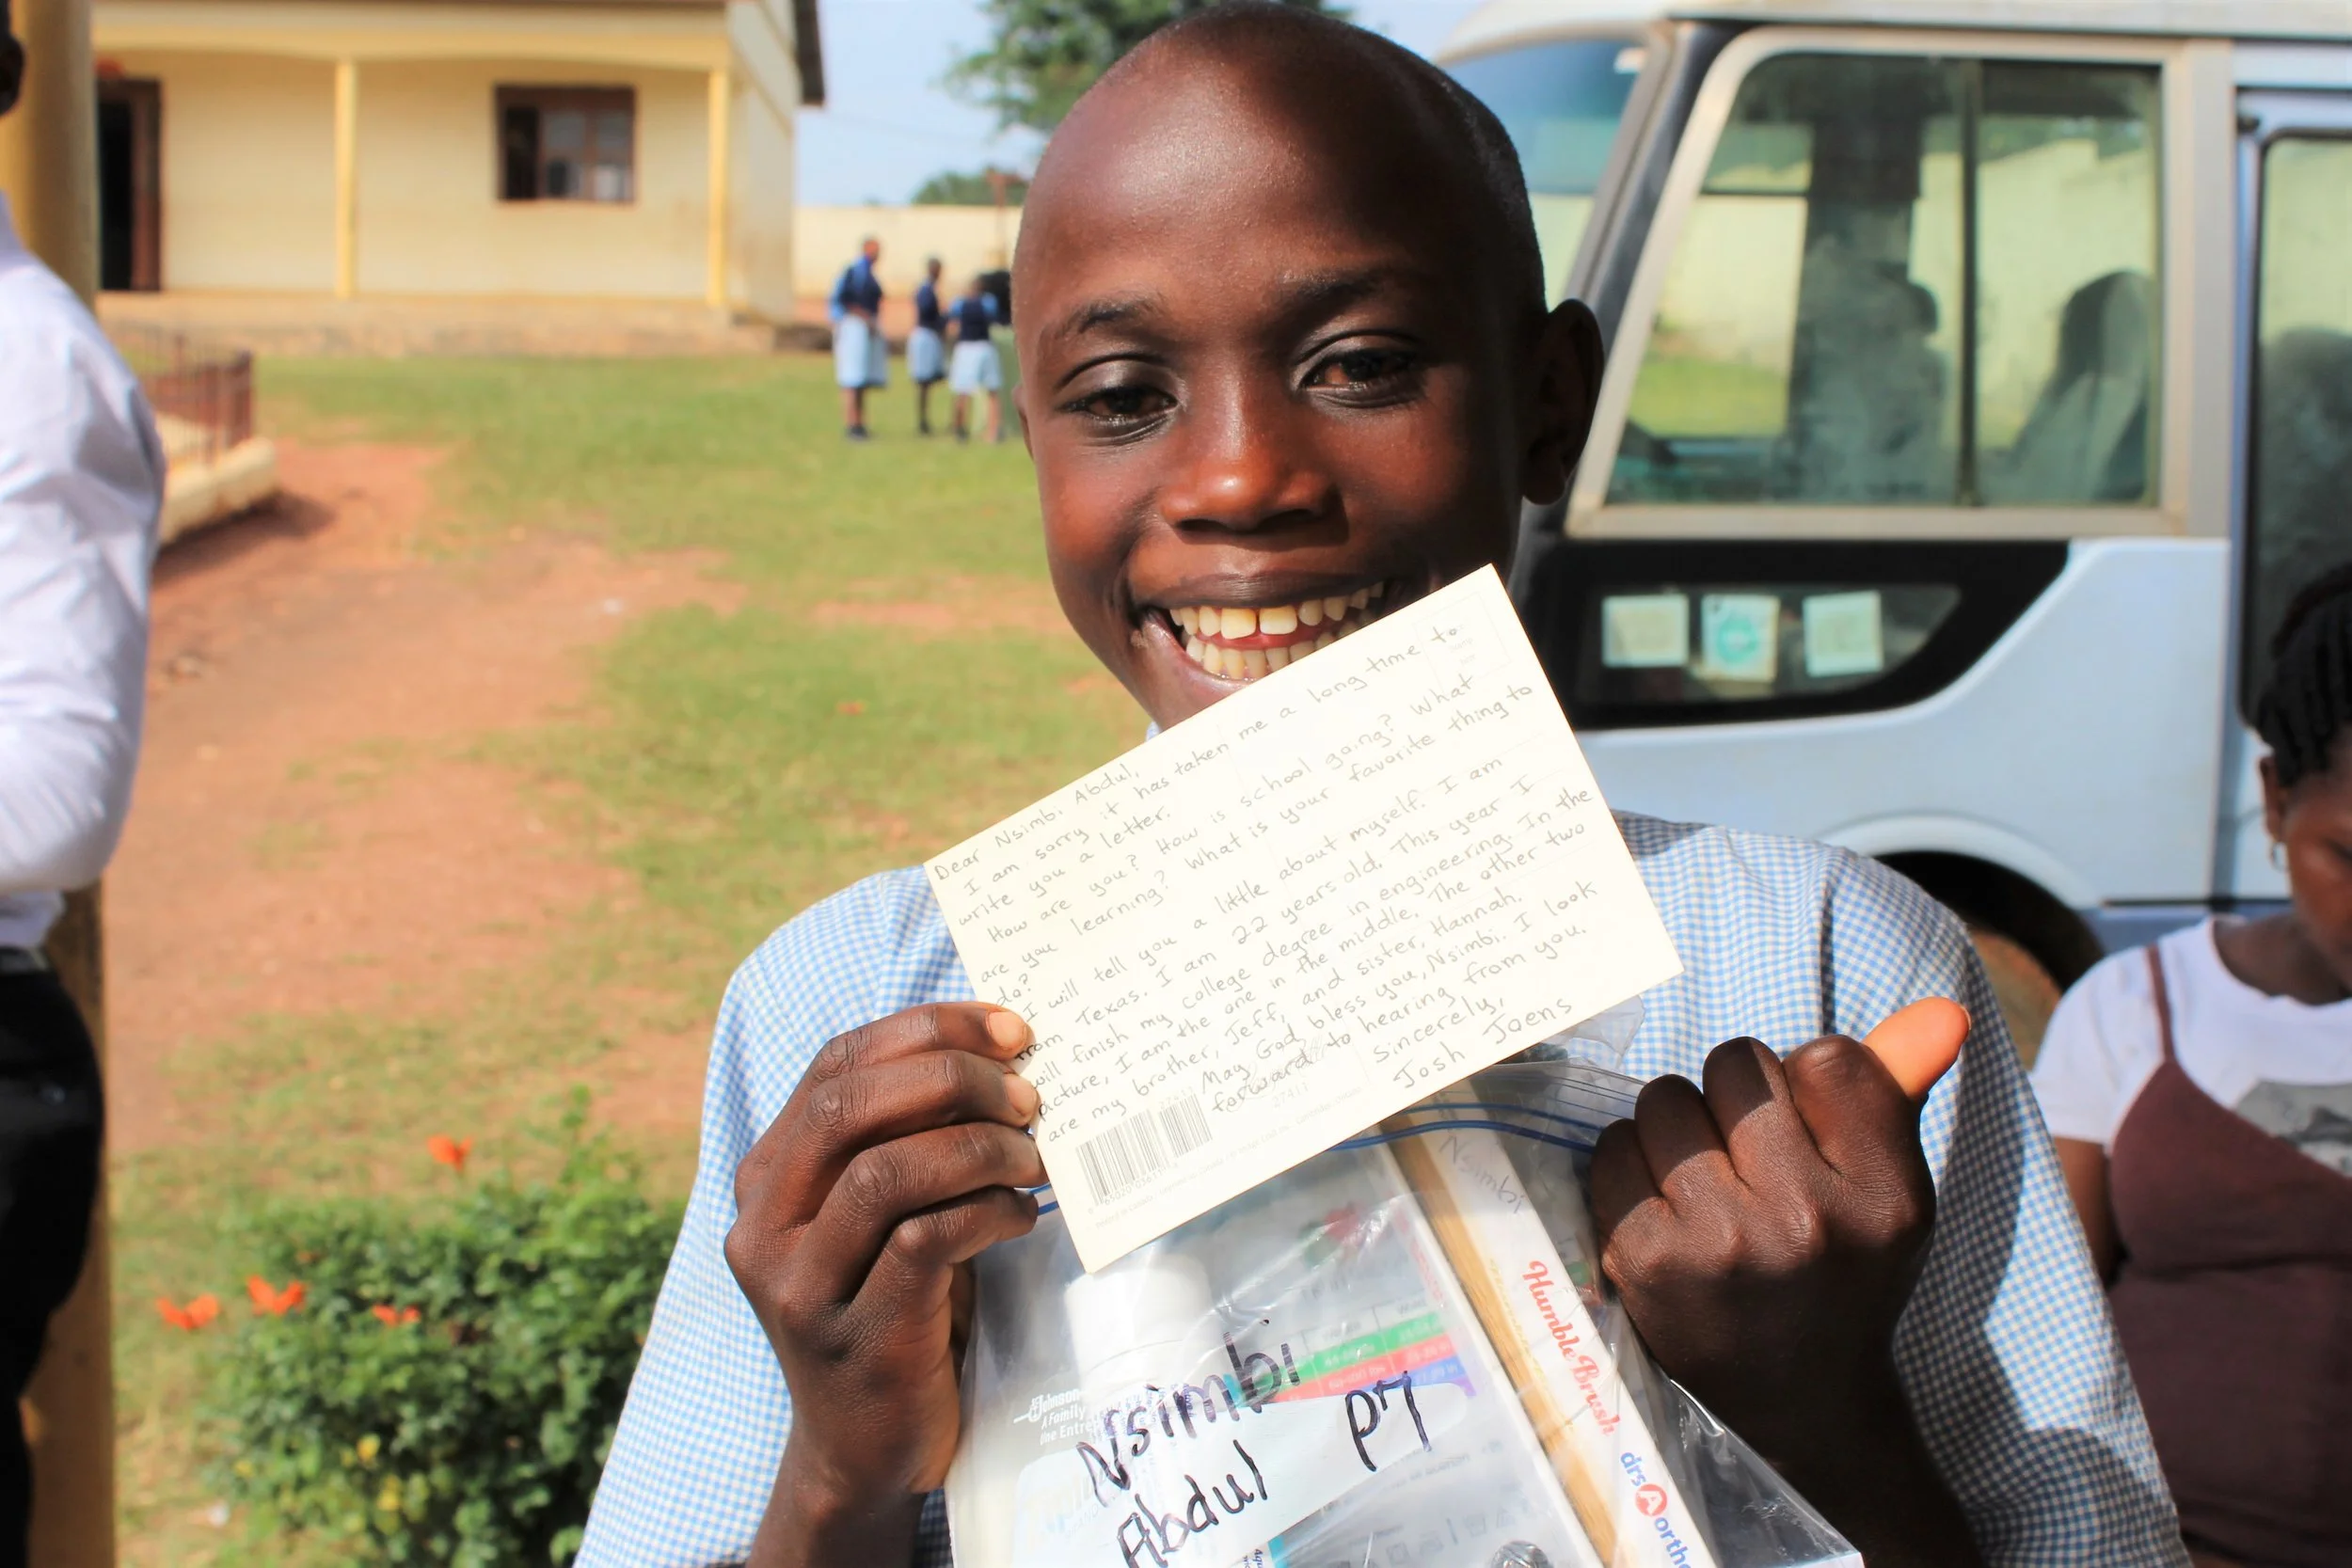 Dear Nsimbi Abdul,
I am sorry it has taken me a long time to
write you a letter.
How are you? How is school going? What
are you learning? What is your favorite thing to
do?
I will tell you a little about myself. I am
from Texas. I am 22 years old. This year I
will finish my college degree in engineering. In the
picture, I am the one in the middle. The other two
are my brother, Jeff, and sister, Hannah.
May God bless you, Nsimbi. I look
forward to hearing from you.
Sincerely,
Josh Joens
27411
Nsimbi
HumbleBrush
drsAortho
Johnson
A Family
One Entre
Nsimbi
Abdul P7